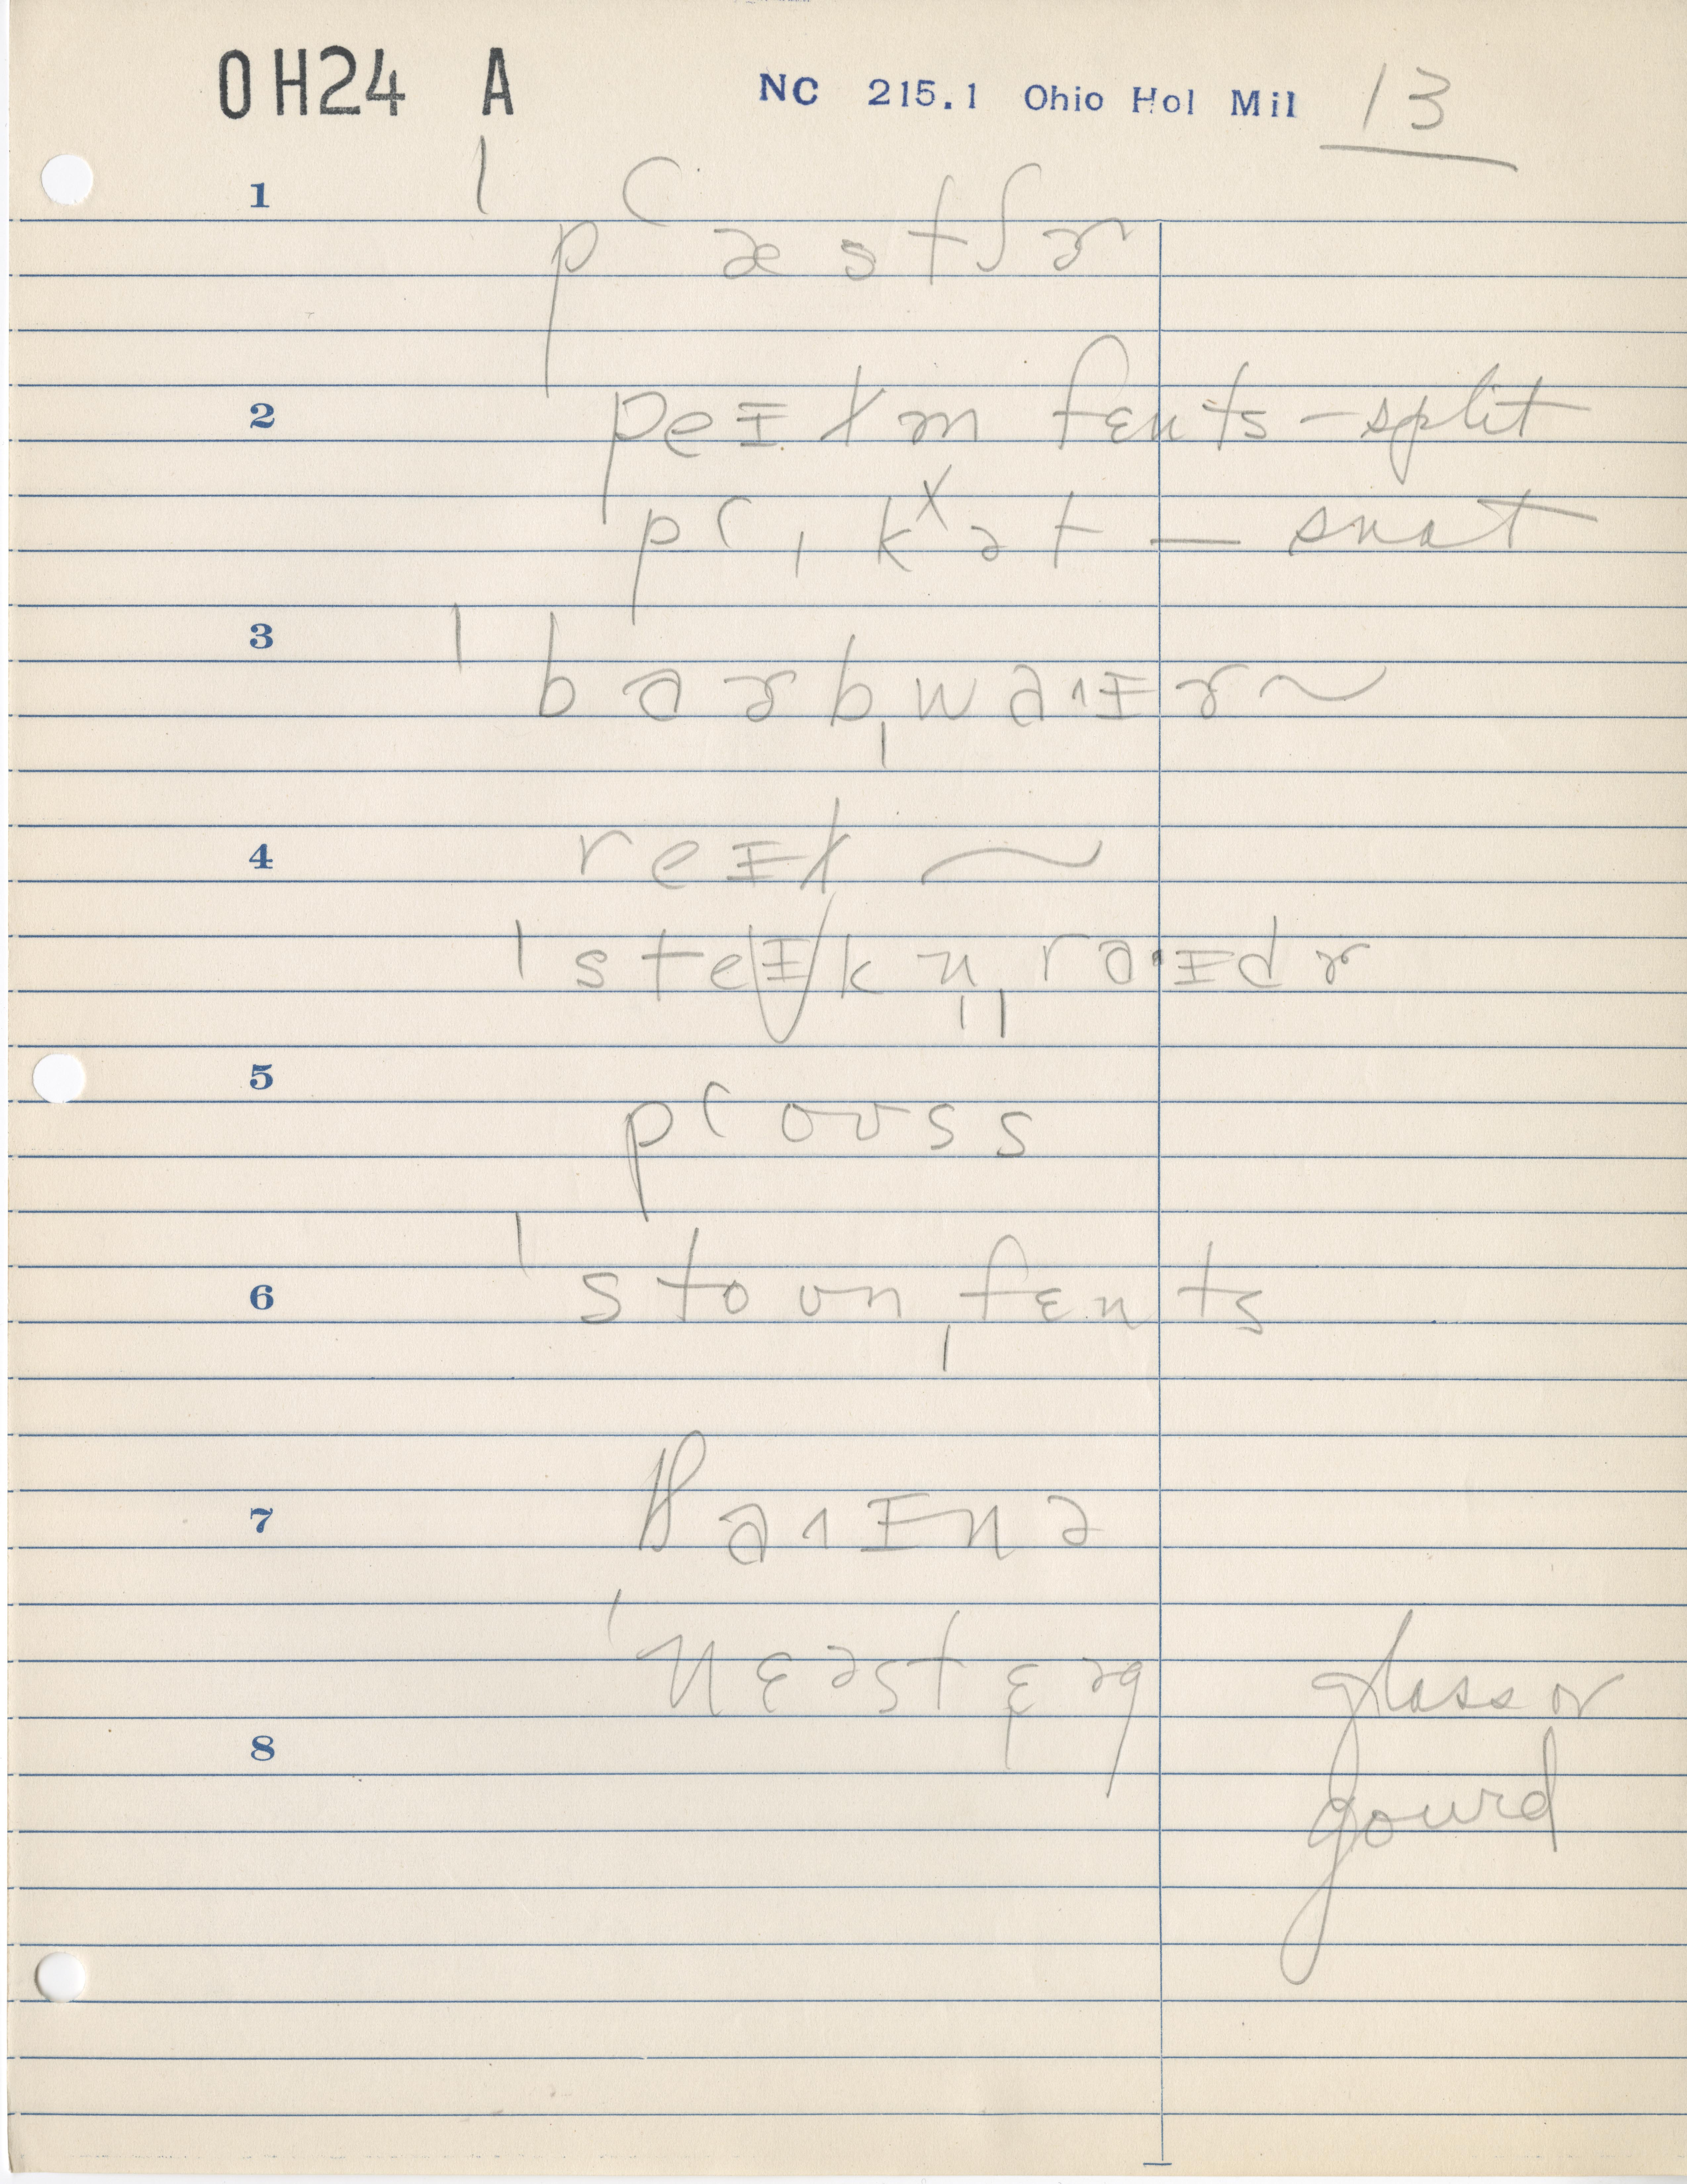 OH24 A NC 215.1 Ohio Hol Mil 13
1 ˈpʻæstʃɚ
2 peɪlɪn fɛnts – split
pʻɪkˣət – snat
3 ˈbɑɚbˌwaˑɪɚ ~
4 reɪl ~
ˈsteɪk n̩ˌraˑɪdɚ
5 pʻoʊss
6 ˈstoʊnˌfɛnts
7 tʃaˑɪnə
8 ˈnɛəstɛəg glass or
gourd